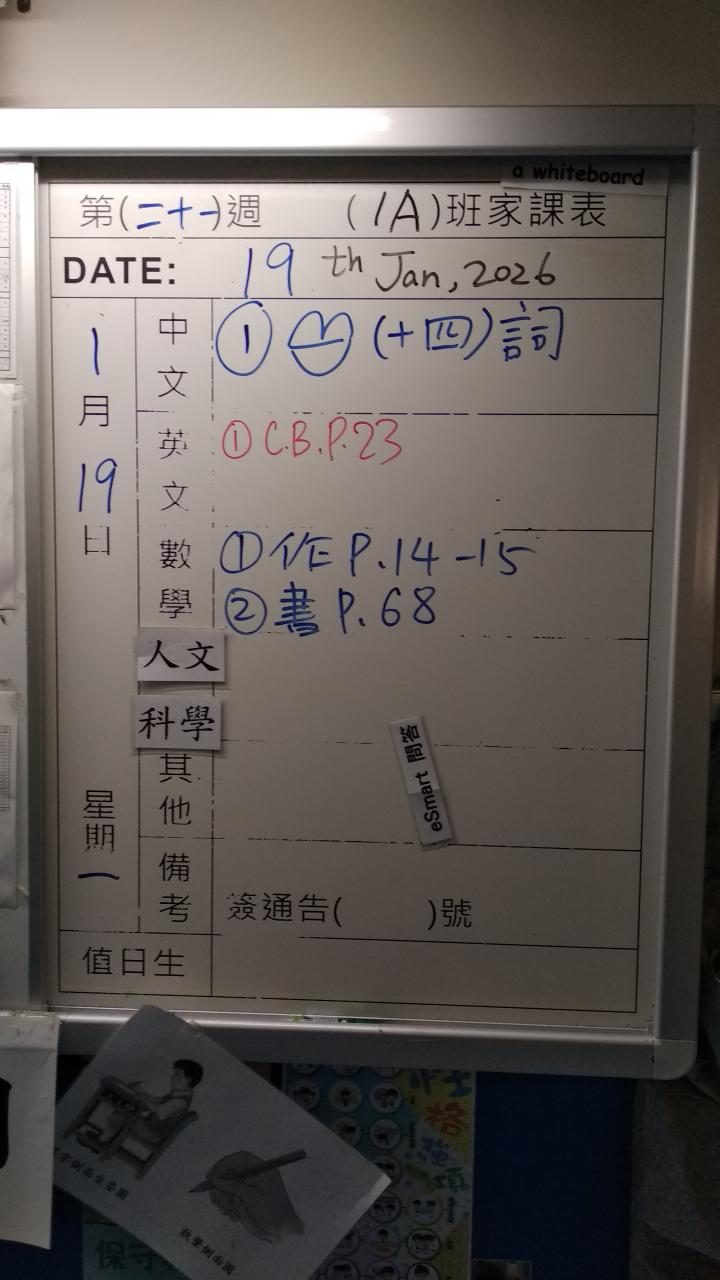 a whiteboard
第(二十一)週 (1A)班家課表
DATE: 19th Jan, 2026
1月19日
星期一
中文 ① (十四)詞
英文 ① C.B.P.23
數學 ① 作 P.14-15
② 書 P.68
人文
科學
其他
eSmart 問答
備考 簽通告( )號
值日生
字側面坐姿圖
執筆側面圖
性格強項
保守